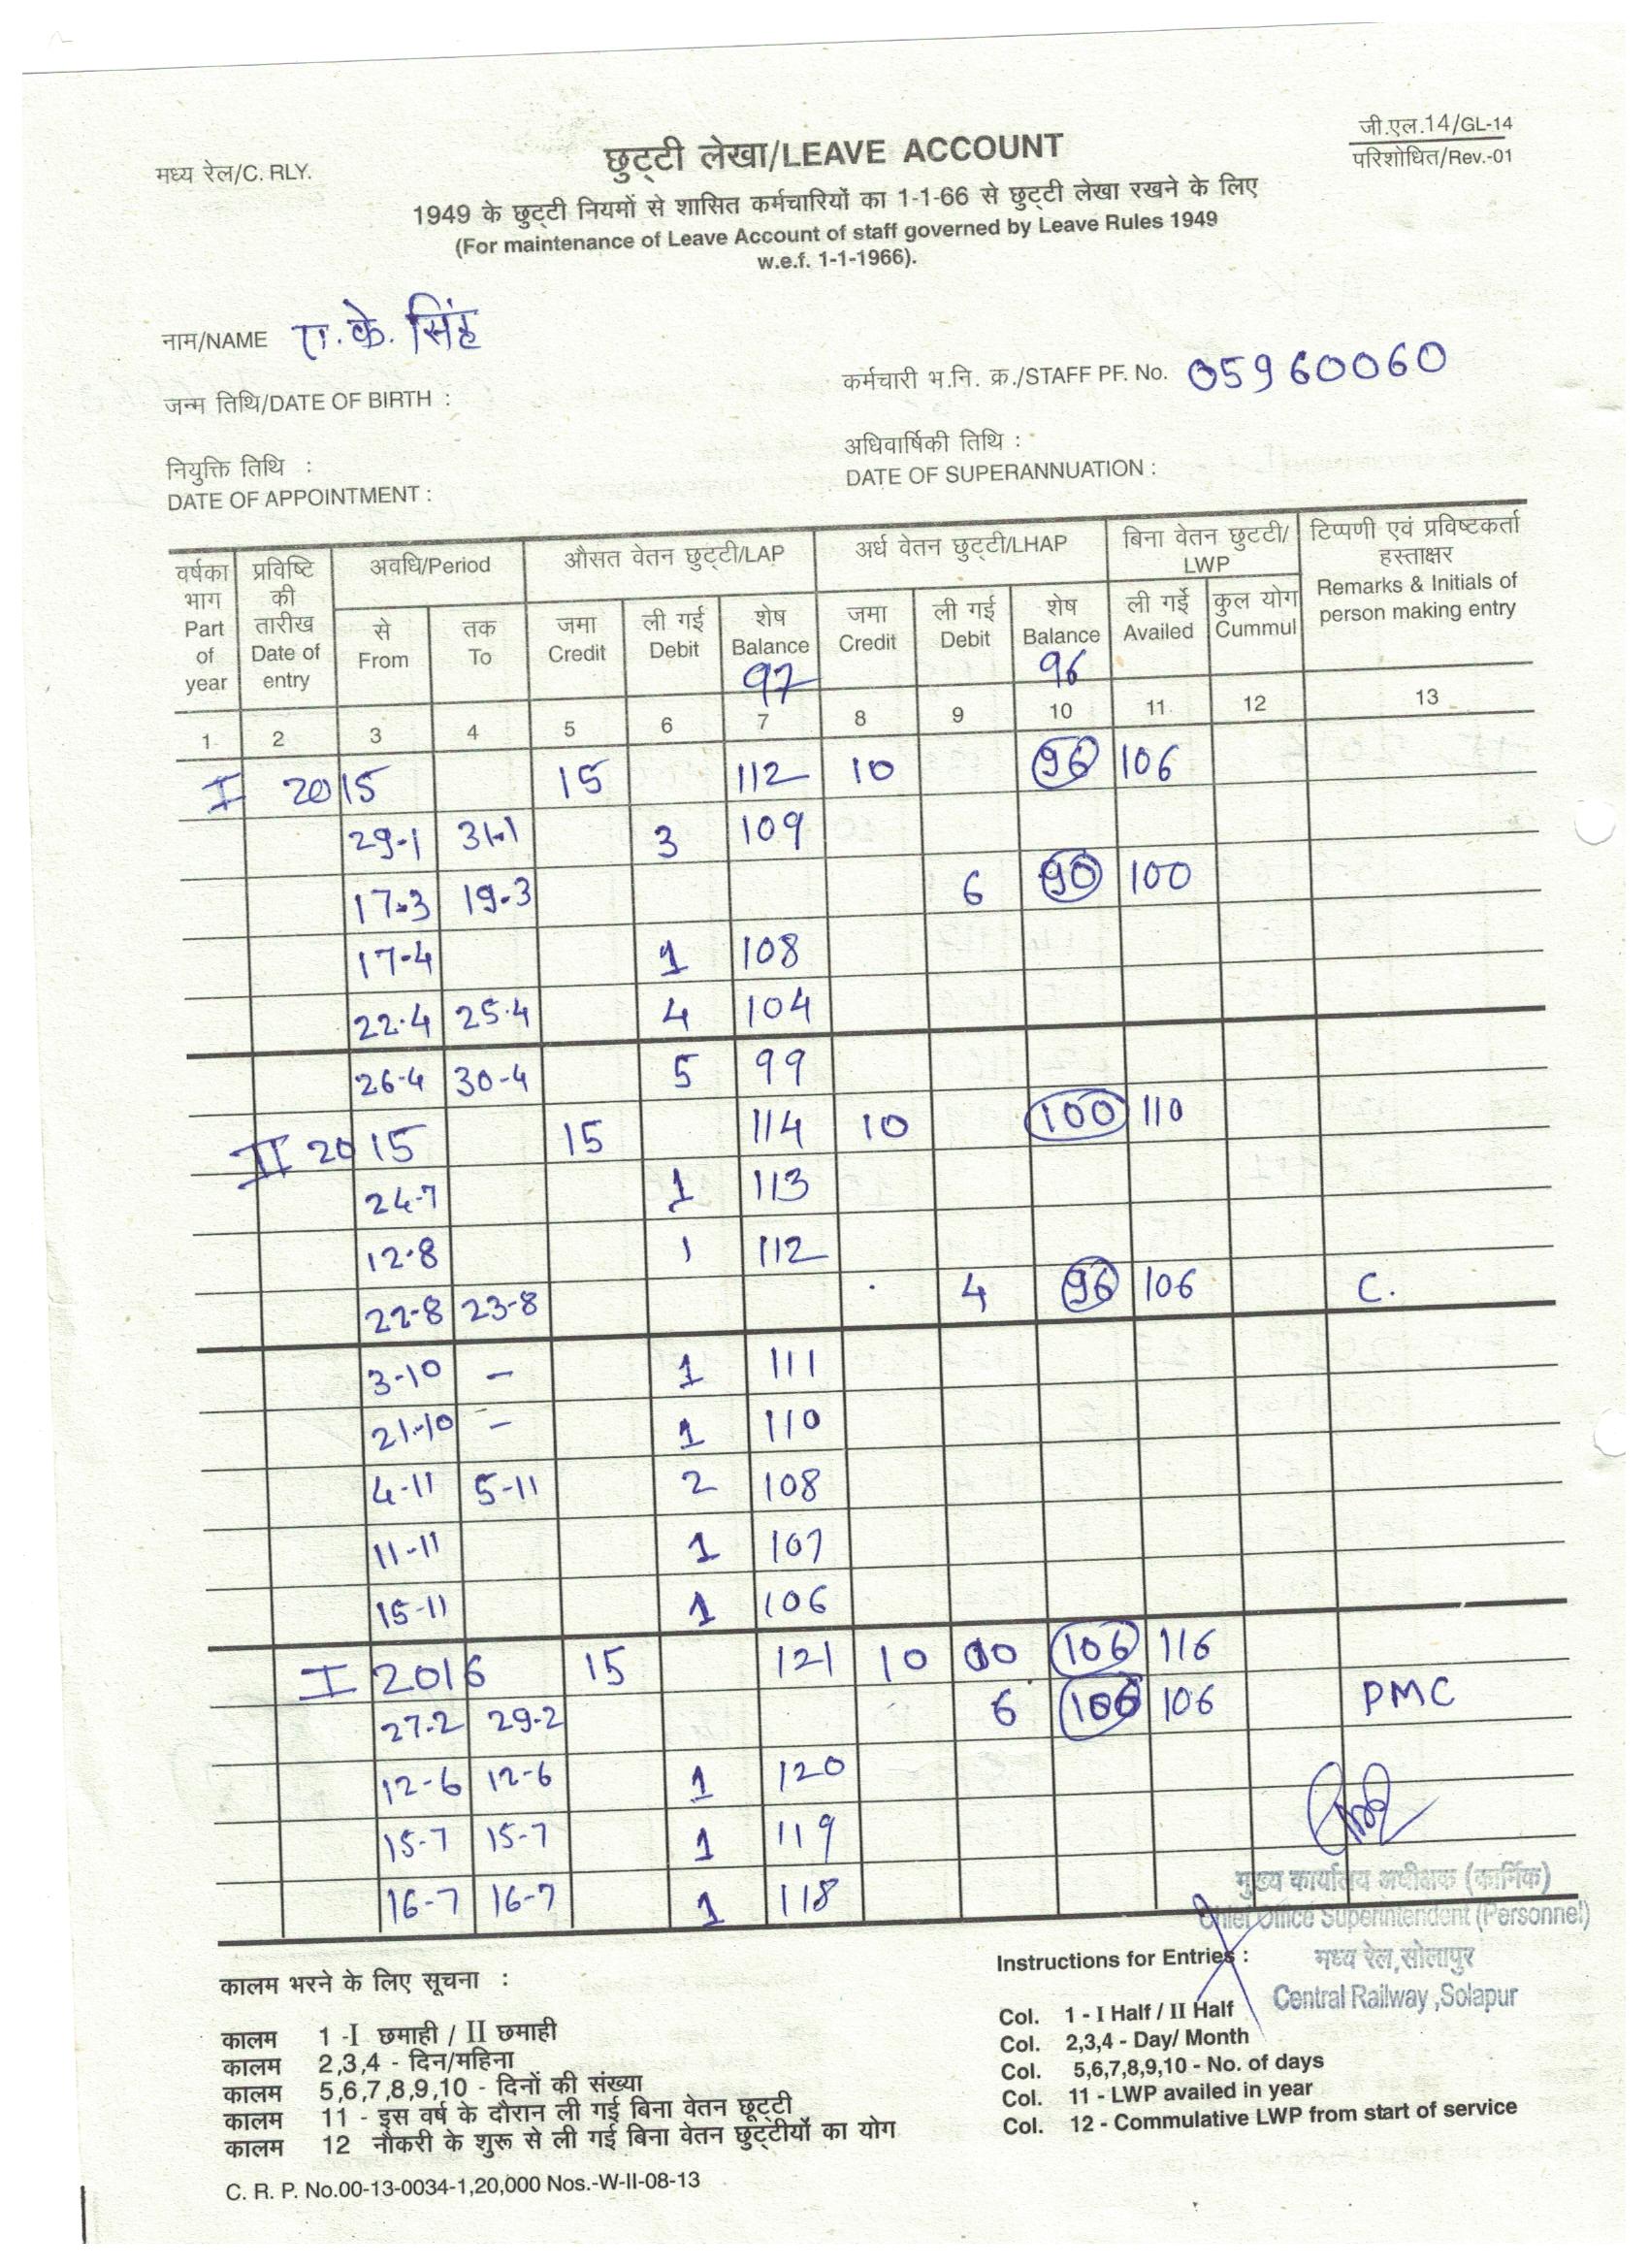 जी.एल.14/GL-14
मध्य रेल/C. RLY.
छुट्टी लेखा/LEAVE ACCOUNT
परिशोधित/Rev.-01
1949 के छुट्टी नियमों से शासित कर्मचारियों का 1-1-66 से छुट्टी लेखा रखने के लिए
(For maintenance of Leave Account of staff governed by Leave Rules 1949
w.e.f. 1-1-1966).
नाम/NAME ए. के. सिंह
कर्मचारी भ.नि. क्र./STAFF PF. No. 05960060
जन्म तिथि/DATE OF BIRTH :
अधिवार्षिकी तिथि :
नियुक्ति तिथि :
DATE OF SUPERANNUATION :
DATE OF APPOINTMENT :
वर्षका भाग Part of year
प्रविष्टि की तारीख Date of entry
अवधि/Period
औसत वेतन छुट्टी/LAP
अर्ध वेतन छुट्टी/LHAP
बिना वेतन छुटटी/ LWP
टिप्पणी एवं प्रविष्टकर्ता हस्ताक्षर Remarks & Initials of person making entry
से From
तक To
जमा Credit
ली गई Debit
शेष Balance 97
जमा Credit
ली गई Debit
शेष Balance 96
ली गईे Availed
कुल योग Cummul
1 2 3 4 5 6 7 8 9 10 11 12 13
I 2015 15 112 10 96 106
29-1 31-1 3 109
17-3 19-3 6 90 100
17-4 1 108
22-4 25-4 4 104
26-4 30-4 5 99
II 2015 15 114 10 100 110
24-7 1 113
12-8 1 112
22-8 23-8 4 96 106 C.
3-10 — 1 111
21-10 — 1 110
4-11 5-11 2 108
11-11 1 107
15-11 1 106
I 2016 15 121 10 10 106 116
27-2 29-2 6 100 106 PMC
12-6 12-6 1 120
15-7 15-7 1 119
16-7 16-7 1 118
मुख्य कार्यालय अधीक्षक (कार्मिक)
Chief Office Superintendent (Personnel)
मध्य रेल,सोलापुर
Central Railway ,Solapur
कालम भरने के लिए सूचना :
कालम 1 -I छमाही / II छमाही
कालम 2,3,4 - दिन/महिना
कालम 5,6,7,8,9,10 - दिनों की संख्या
कालम 11 - इस वर्ष के दौरान ली गई बिना वेतन छूट्टी
कालम 12 नौकरी के शुरू से ली गई बिना वेतन छुट्टीयों का योग
Instructions for Entries :
Col. 1 - I Half / II Half
Col. 2,3,4 - Day/ Month
Col. 5,6,7,8,9,10 - No. of days
Col. 11 - LWP availed in year
Col. 12 - Commulative LWP from start of service
C. R. P. No.00-13-0034-1,20,000 Nos.-W-II-08-13